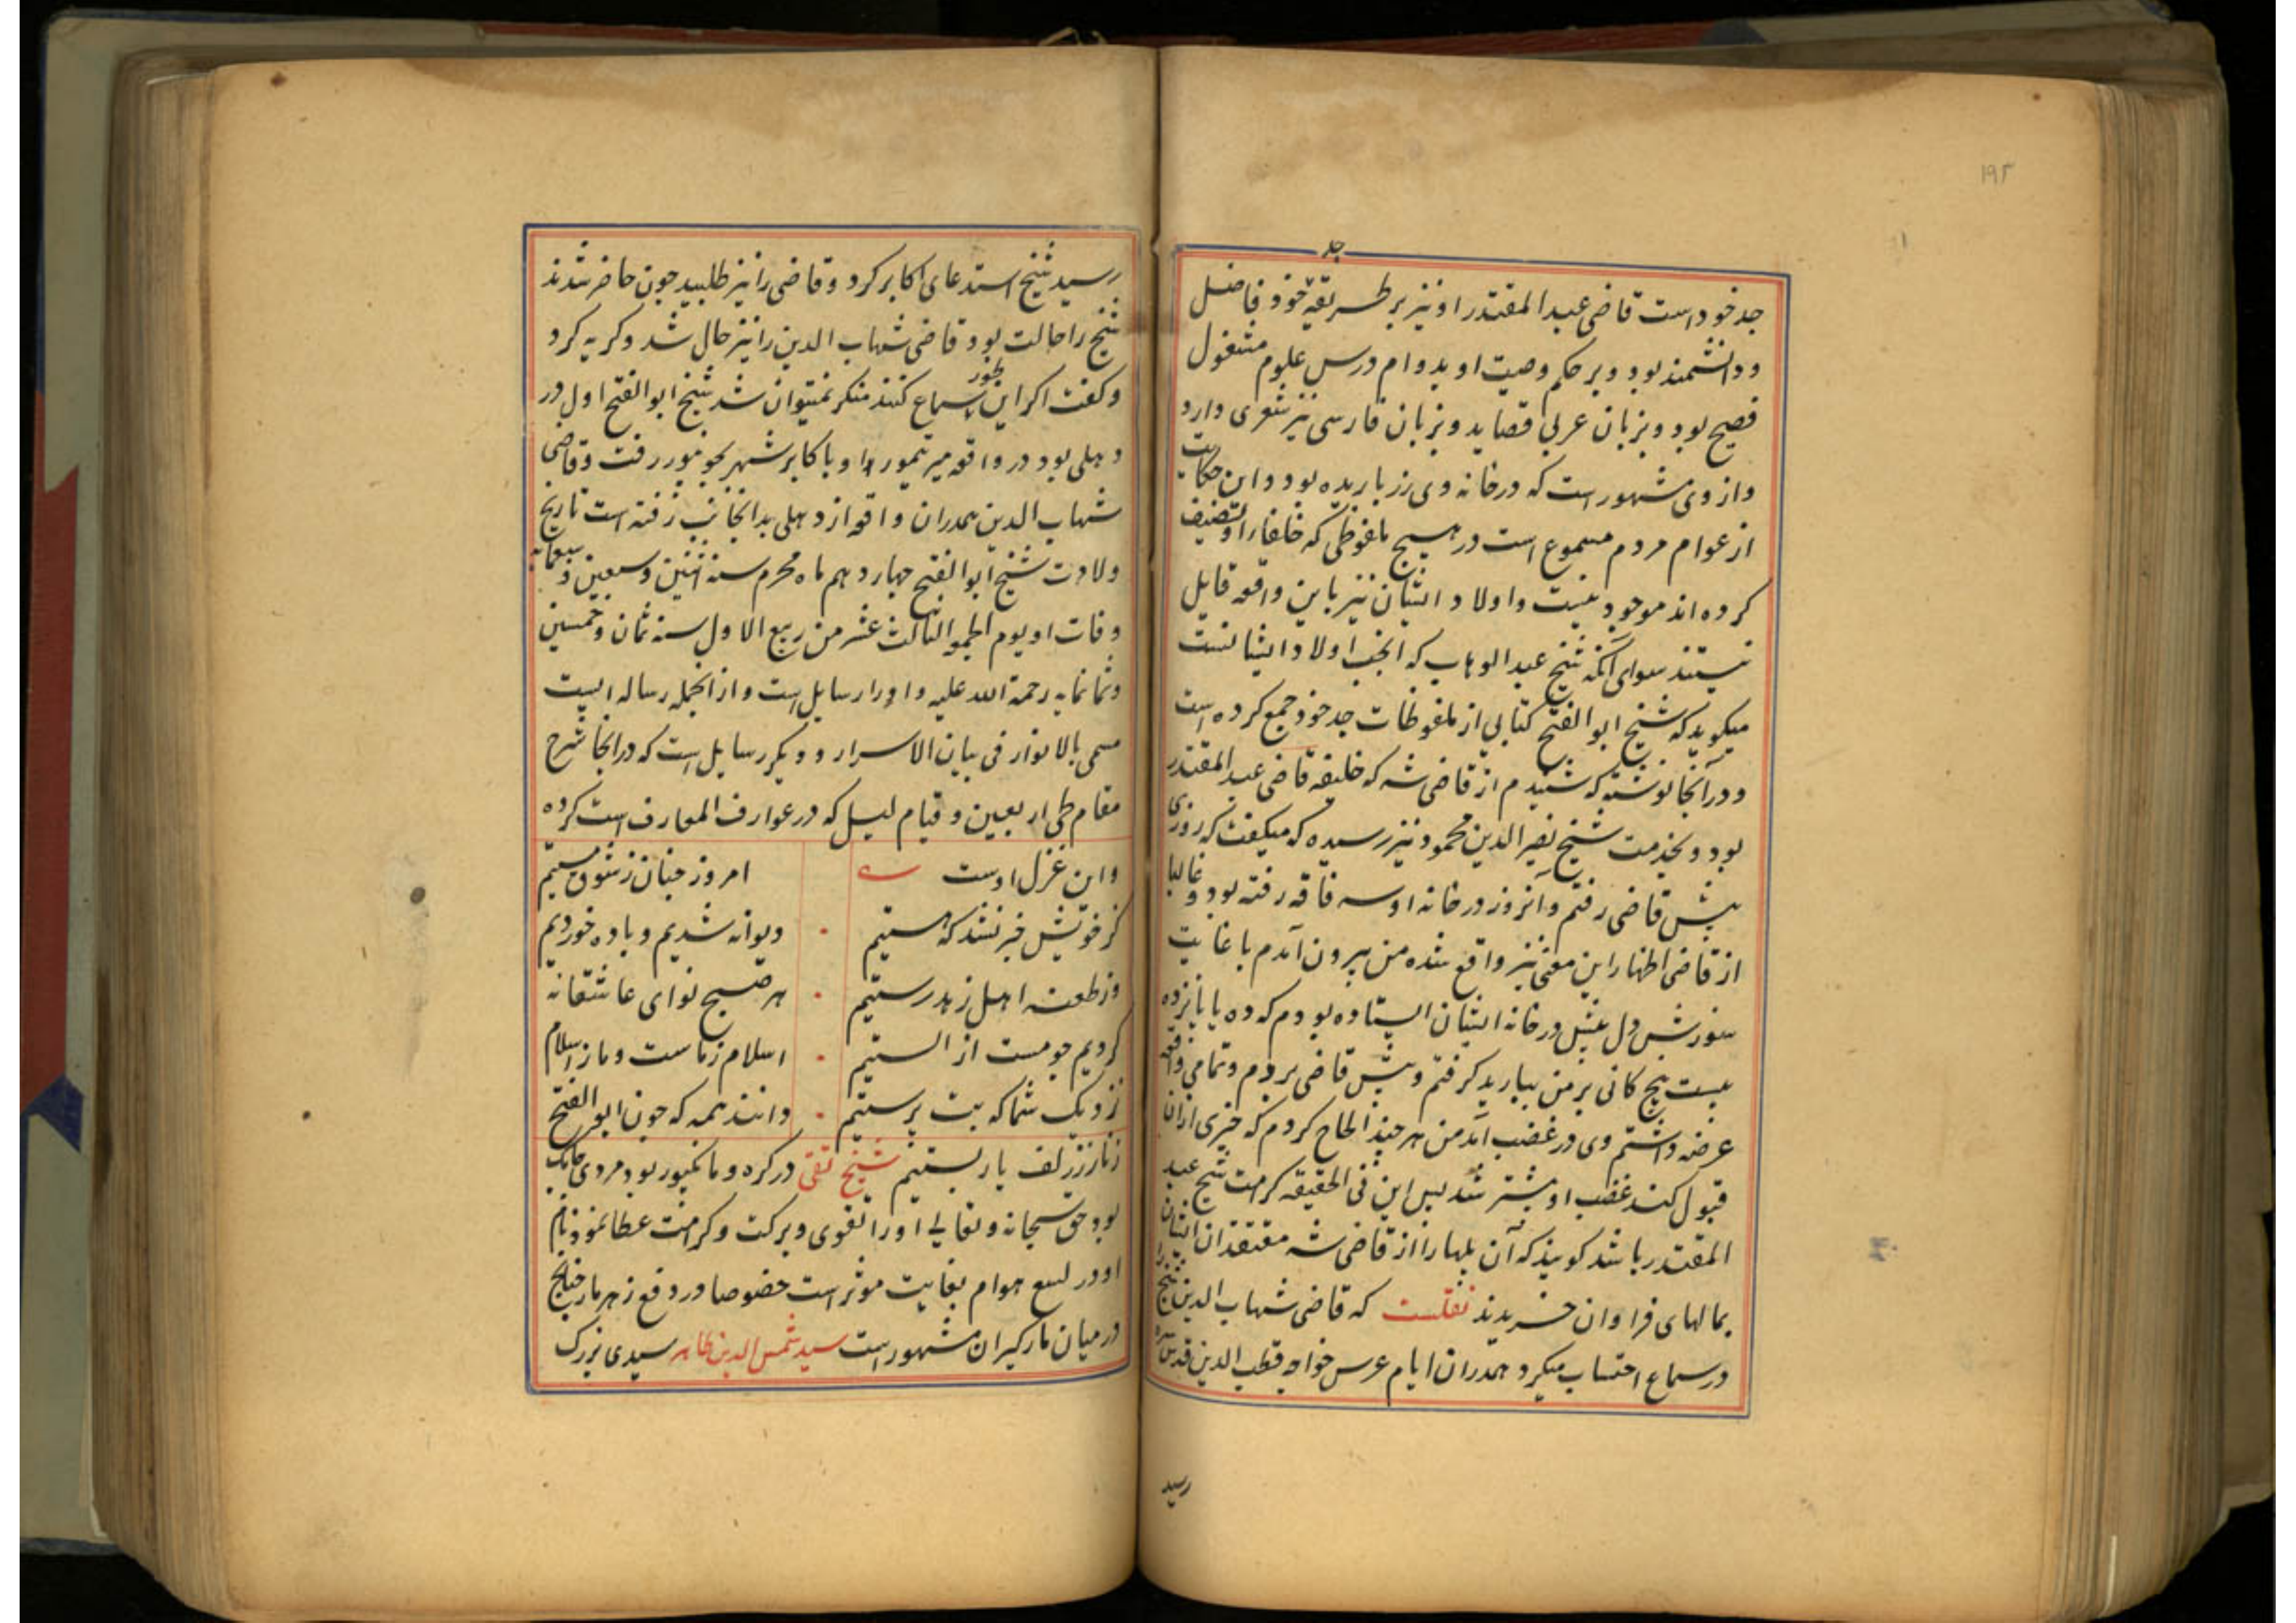 ۱۹۲
جد
جد خود است قاضی عبد المقتدر او نیز بر طریقهٔ خود فاضل
و دانشمند بود و بر حکم وصیت او بدوام درس علوم مشغول
فصیح بود و بزبان عربی قصاید و بزبان فارسی نیز شعری دارد
و از وی مشهور است که در خانه وی زر باریده بود و این حکایت
از عوام مردم مسموع است در هیچ ملفوظی که خلفا را او تصنیف
کرده اند موجود نیست و اولاد ایشان نیز باین واقعه قایل
نیستند سوای آنکه شیخ عبد الوهاب که انجب اولاد ایشانست
میکوید که شیخ ابو الفتح کتابی از ملفوظات جد خود جمع کرده است
و در آنجا نوشته که شنیدم از قاضی شه که خلیفه قاضی عبد المقتدر
بود و بخدمت شیخ نصیر الدین محمود نیز رسیده که میکفت که روزی
پیش قاضی رفتم و آنروز در خانه او سه فاقه رفته بود و غالبا
از قاضی اظهار این معنی نیز واقع شده من بیرون آمدم با غایت
سوزش دل پیش در خانه ایشان ایستاده بودم که ده یا پانزده
بیست پنج کانی بر من ببارید کرفتم و پیش قاضی بردم و تمامی واقعه
عرضه داشتم وی در غضب آمد من هر چند الحاح کردم که چیزی ازان
قبول کند غضب او بیشتر شد پس این فی الحقیقه کرامت شیخ عبد
المقتدر باشد کویند که آن پلها را از قاضی شه معتقدان ایشان
بمالهای فراوان خریدند نقلست که قاضی شهاب الدین شیخ را
در سماع احتساب میکرد همدران ایام عرس خواجه قطب الدین قدس سره
رسید
رسید شیخ استدعای اکابر کرد و قاضی را نیز طلبید چون حاضر شدند
شیخ را حالت بود قاضی شهاب الدین را نیز حال شد و کریه کرد
و کفت اکر این طور سماع کنند منکر نمیتوان شد شیخ ابو الفتح اول در
دهلی بود در واقعه میر تیمور او با کابر شهر بجونپور رفت و قاضی
شهاب الدین همدران واقعه از دهلی بدانجانب رفته است تاریخ
ولادت شیخ ابو الفتح چهاردهم ماه محرم سنه اثنین و سبعین و سبعمایه
وفات او یوم الجمعه الثالث عشر من ربیع الاول سنه ثمان و خمسین
و ثمانمایه رحمة الله علیه و او را رسایل است و از انجمله رساله ایست
مسمی بالانوار فی بیان الاسرار و دیکر رسایل است که در انجا شرح
مقام طی اربعین و قیام لیل که در عوارف المعارف است کرده
و این غزل اوست امروز چنان ز شوق مستیم
کز خویش خبر نشد که هستیم دیوانه شدیم و باده خوردیم
وز طعنه اهل زهد رستیم هر صبح نوای عاشقانه
کردیم چو مست از الستیم اسلام ز ماست و ما ز اسلام
نزدیک شما که بت پرستیم دانند همه که چون ابو الفتح
زنار ز زلف یار بستیم شیخ تقی در کره و مانکپور بود مردی حایک
بود حق سبحانه و تعالی او را تقوی و برکت و کرامت عطا نمود نام
او در لسع هوام بغایت موثر است خصوصا در دفع زهر مار چنانچ
در میان مارکیران مشهور است سید شمس الدین طاهر سیدی بزرک